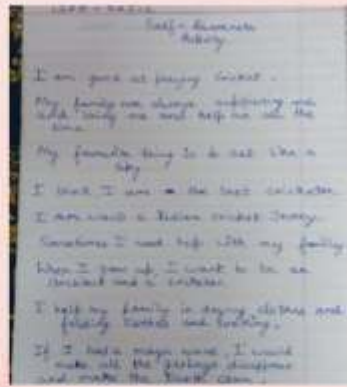 Self-Awareness
Activity
I am good at playing Cricket.
My family are always supporting me
and and help me all the
time.
My favorite thing is to eat like a
I think I am the best cricketer.
I am want a Indian cricket Jersey.
Sometimes I need help with my family
When I grow up, I want to be an
and a cricketer.
I help my family in drying clothes and
folding clothes and cooking.
If I had a magic wand, I would
make all the garbage disappear
and make the clean.